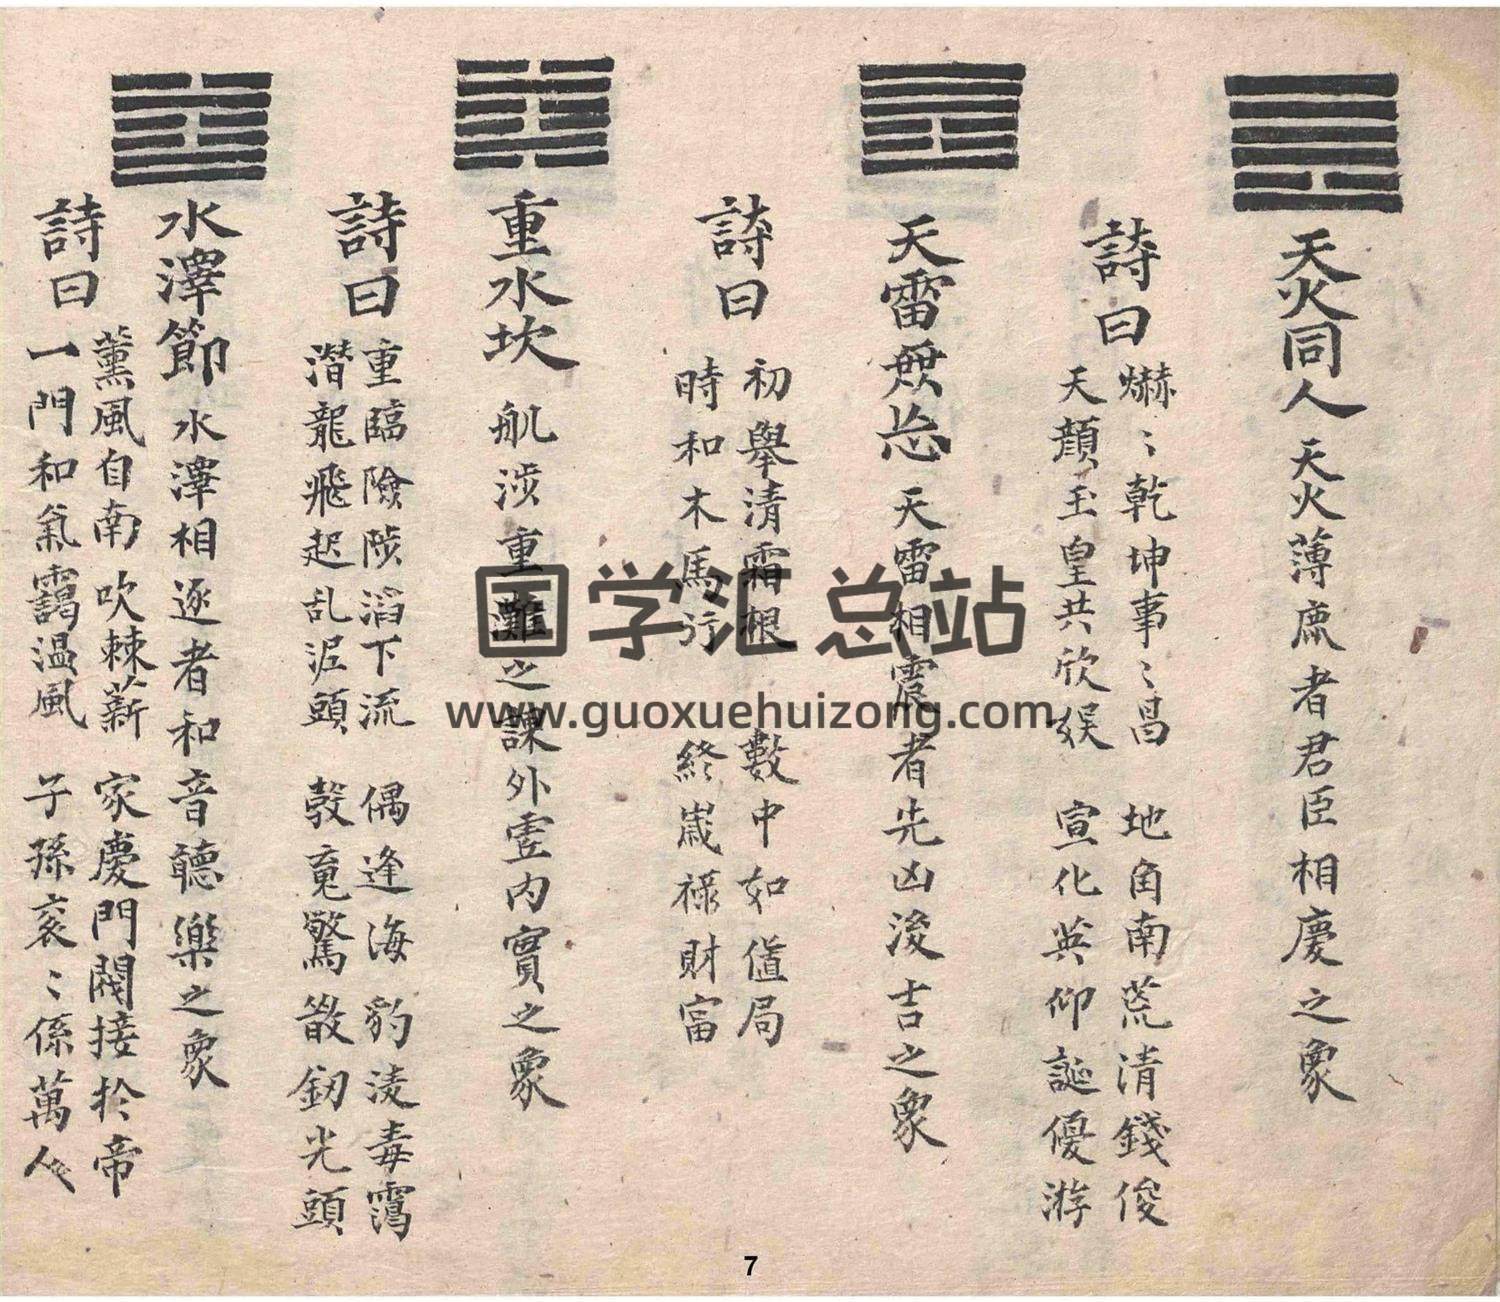 天火同人 天火薄鹿者君臣相慶之象
詩曰
爀〻乾坤事〻昌 地角南荒清錢俊
天顔玉皇共欣娱 宣化英仰誕優游
天雷 天雷相震者先凶後吉之象
詩曰
初舉清霜根 數中如值局
時和木馬行 終嵗禄財富
重水坎 舤涉重灘之諌外虗内實之象
詩曰
重臨險陟滔下流 偶逢海豹淩毒
潛龍飛起乱泥頭 驚散釰光頭
水澤節 水澤相逐者和音聽樂之象
詩曰
薰風自南吹棘薪 家慶門閥接於帝
一門和氣靄温風 子孫衮〻係萬人
国学汇总站
www.guoxuehuizong.com
7